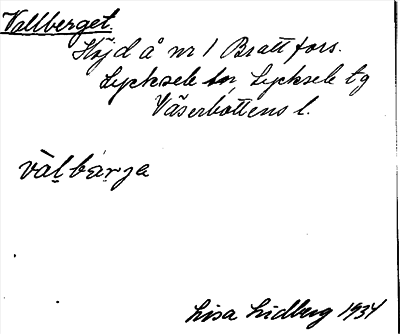 Vallberget.
Höjd å nr 1 Brattfors.
Lycksele sn, Lycksele tg
Väserbottens l.
vàḷbæ̀r̥ja
Lisa Lidberg 1934